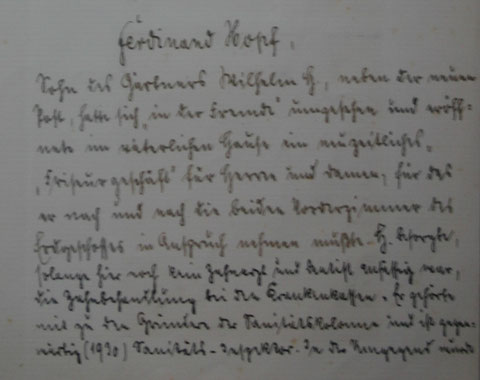 Ferdinand Hopf.
Sohn des Gärtners Wilhelm H., neben der neuen
Post, hatte sich „in der Fremde" umgesehen und eröff-
nete im väterlichen Hause ein neuzeitliches
„Friseurgeschäft" für Herren und Damen, für das
er nach und nach die beiden Vorderzimmer des
Erdgeschosses in Anspruch nehmen mußte. H. besorgte,
solange hier noch kein Zahnarzt und Dentist ansässig war,
die Zahnbehandlung bei den Krankenkassen. Er gehörte
mit zu den Gründern der Sanitätskolonne und ist gegen-
wärtig (1930) Sanitäts-Inspektor. In der Umgegend wurde